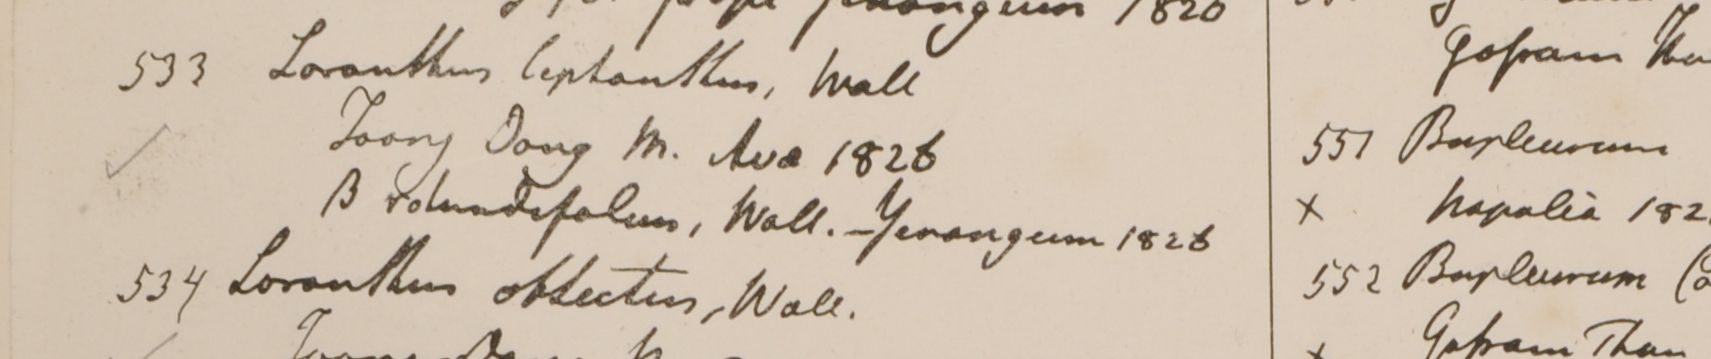 Yenangeum 1826
533 Loranthus leptanthus, Wall
Toong Dong M. Ava 1826
B rotundifolius, Wall. - Yenangeum 1826
534 Loranthus obtectus, Wall.
Toong Dong M
Gossam Than
551 Bupleurum
x Napalia 182
552 Bupleurum
x Gossam Than